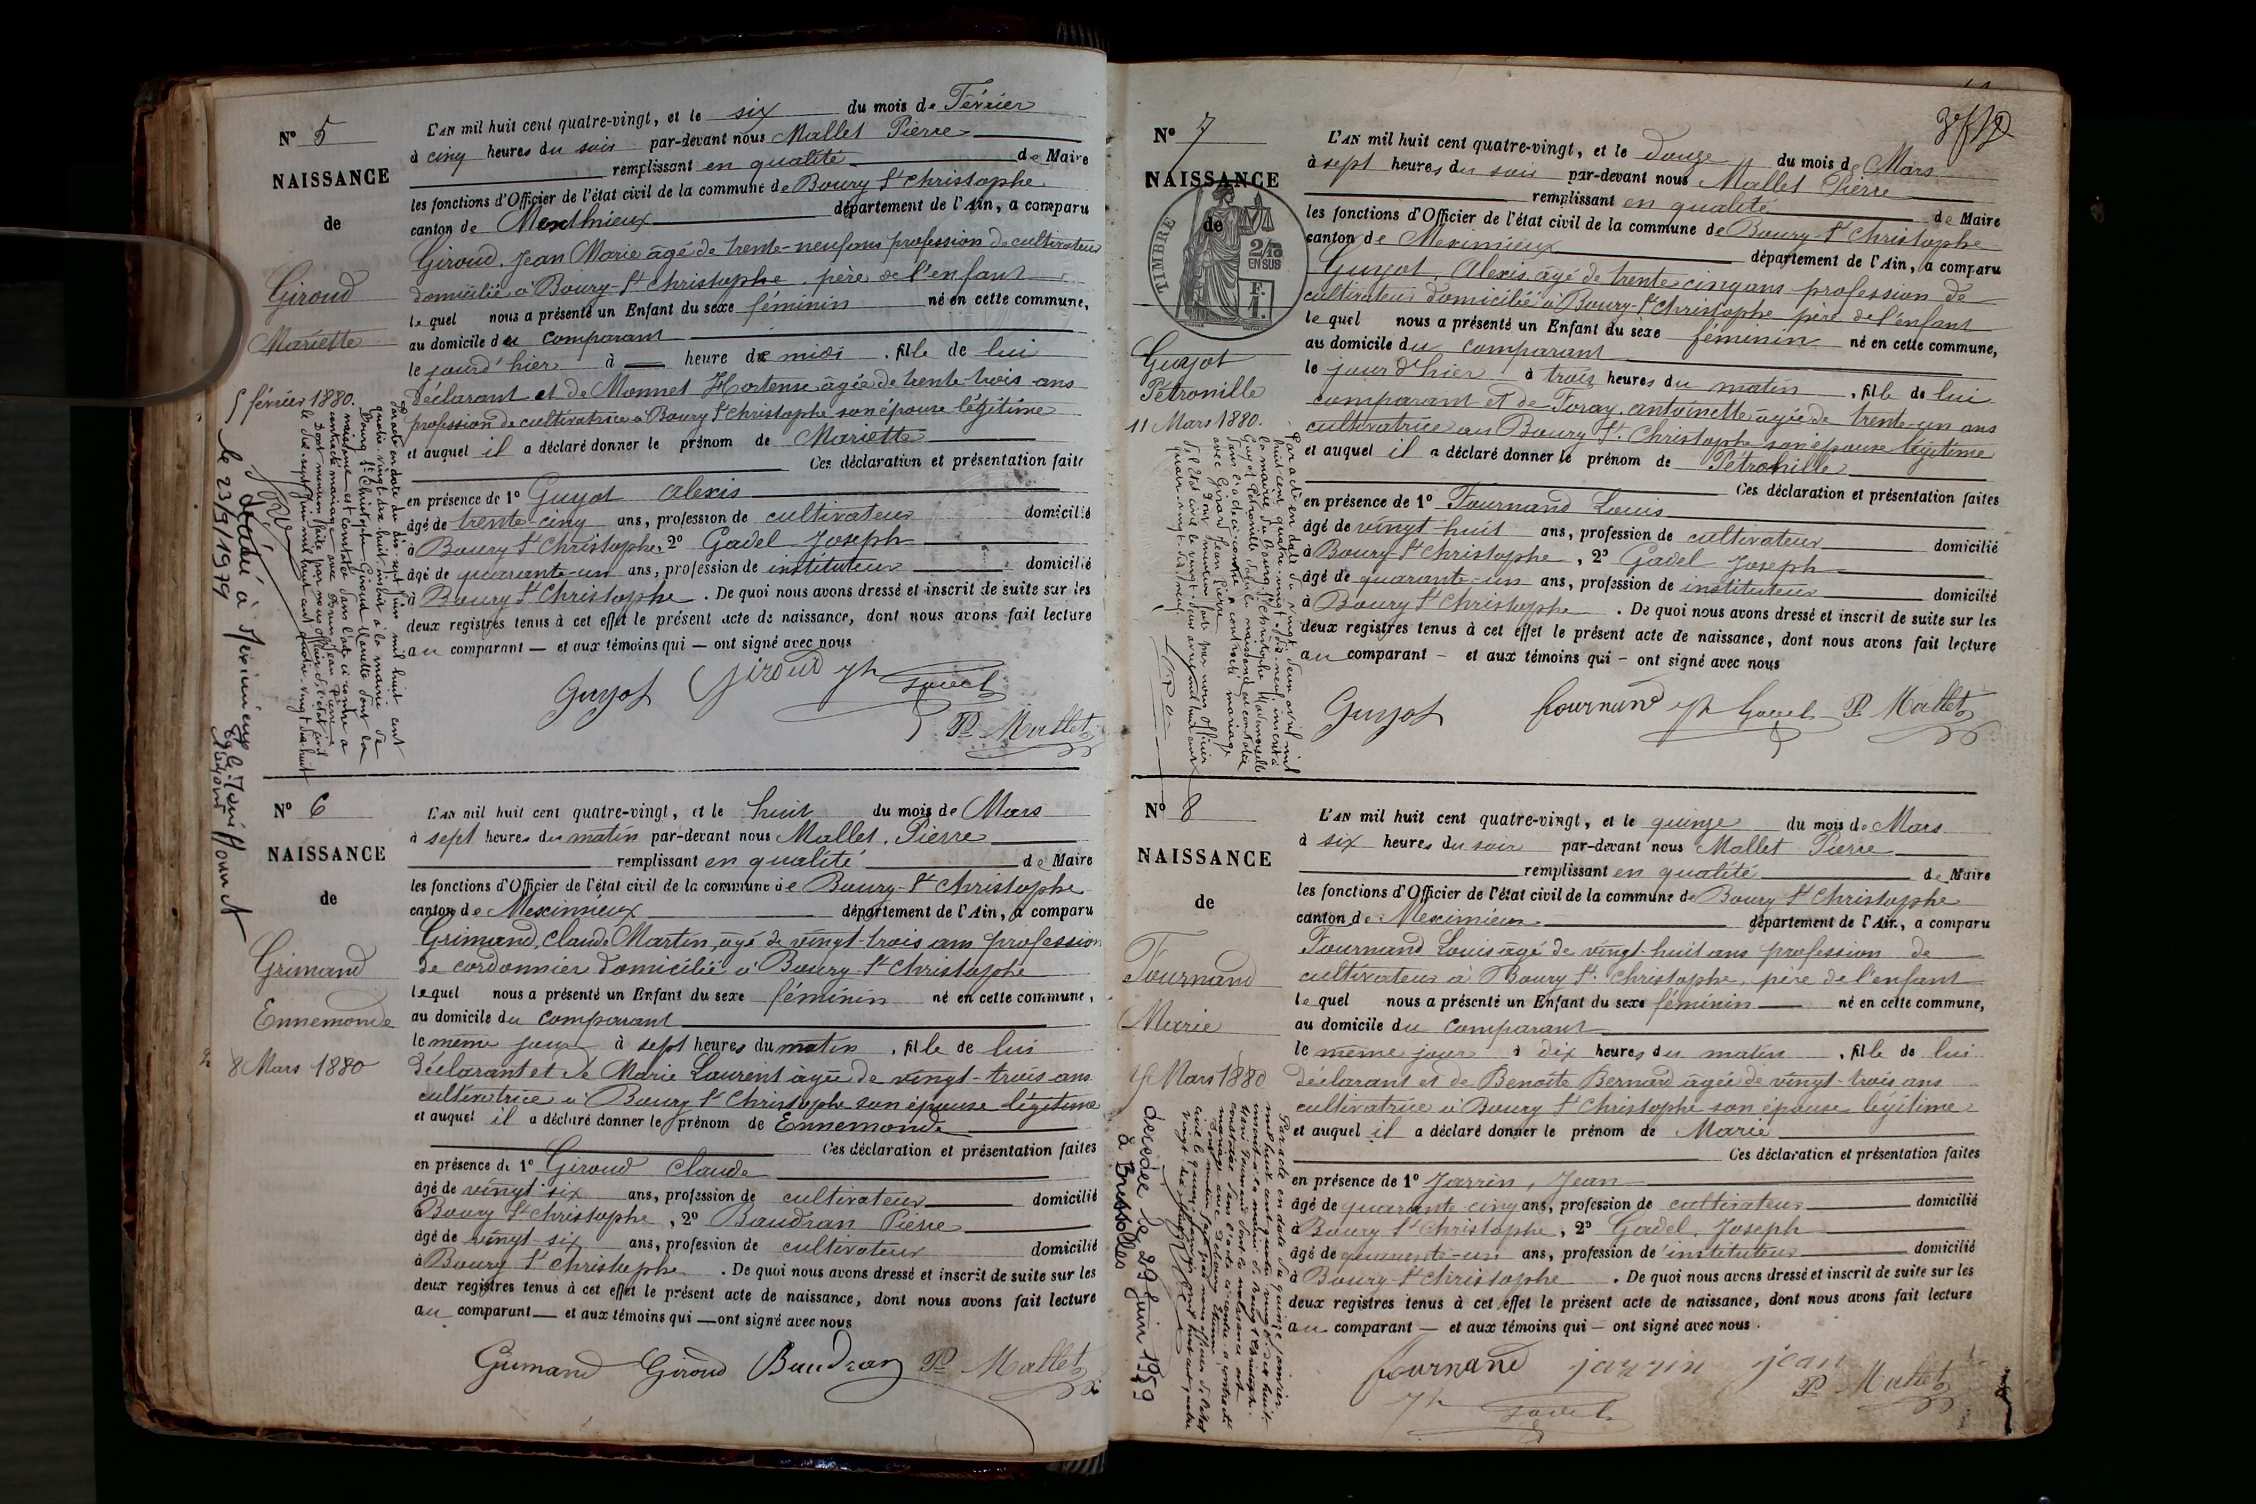 N° 5
NAISSANCE
de
Giroud
Mariette
5 février 1880.
L'AN mil huit cent quatre-vingt, et le six du mois de Février
à cinq heures du soir par-devant nous Mallet Pierre
remplissant en qualité de Maire
les fonctions d'Officier de l'état civil de la commune de Bourg St Christophe
canton de Meximieux département de l'Ain, a comparu
Giroud Jean Marie âgé de trente-neuf ans profession de cultivateur
domicilié à Bourg St Christophe père de l'enfant
lequel nous a présenté un Enfant du sexe féminin né en cette commune,
au domicile du comparant
le jour d'hier à heure de midi, fille de lui
déclarant et de Monnet Hortense âgée de trente-trois ans
profession de cultivatrice à Bourg St Christophe son épouse légitime
et auquel il a déclaré donner le prénom de Mariette
Ces déclaration et présentation faites
en présence de 1° Guyot Alexis
âgé de trente cinq ans, profession de cultivateur domicilié
à Bourg St Christophe, 2° Gadel Joseph
âgé de quarante-un ans, profession de instituteur domicilié
à Bourg St Christophe. De quoi nous avons dressé et inscrit de suite sur les
deux registres tenus à cet effet le présent acte de naissance, dont nous avons fait lecture
au comparant — et aux témoins qui — ont signé avec nous
Guyot Giroud Jh Gadel
P. Mallet
Par acte en date du dix-sept juin mil huit cent
quatre-vingt-dix-huit inscrit à la mairie de
Bourg St Christophe Giroud Mariette dont la
naissance est constatée dans l'acte ci-contre a
contracté mariage avec Brun Jean Pierre
Dont mention faite par nous officier de l'état civil
le dix-sept juin mil huit cent quatre-vingt-dix-huit
décédé à Meximieux
le 23/9/1979
N° 6
NAISSANCE
de
Grimand
Ennemonde
8 Mars 1880
L'AN mil huit cent quatre-vingt, et le huit du mois de Mars
à sept heures du matin par-devant nous Mallet, Pierre
remplissant en qualité de Maire
les fonctions d'Officier de l'état civil de la commune de Bourg-St Christophe
canton de Meximieux département de l'Ain, a comparu
Grimand, Claude Martin, âgé de vingt-trois ans profession
de cordonnier domicilié à Bourg-St Christophe
lequel nous a présenté un Enfant du sexe féminin né en cette commune,
au domicile du comparant
le même jour à sept heures du matin, fille de lui
déclarant et de Marie Laurent âgée de vingt-trois ans
cultivatrice à Bourg St Christophe son épouse légitime
et auquel il a déclaré donner le prénom de Ennemonde
Ces déclaration et présentation faites
en présence de 1° Giroud Claude
âgé de vingt-six ans, profession de cultivateur domicilié
à Bourg St Christophe, 2° Baudran Pierre
âgé de vingt-six ans, profession de cultivateur domicilié
à Bourg St Christophe. De quoi nous avons dressé et inscrit de suite sur les
deux registres tenus à cet effet le présent acte de naissance, dont nous avons fait lecture
au comparant — et aux témoins qui — ont signé avec nous
Grimand Giroud Baudran P. Mallet
N° 7
NAISSANCE
de
TIMBRE
2/10 EN SUS
F. 1.
Guyot
Pétronille
11 Mars 1880.
L'AN mil huit cent quatre-vingt, et le douze du mois de Mars
à sept heures du soir par-devant nous Mallet Pierre
remplissant en qualité de Maire
les fonctions d'Officier de l'état civil de la commune de Bourg-St Christophe
canton de Meximieux département de l'Ain, a comparu
Guyot, Alexis âgé de trente cinq ans profession de
cultivateur domicilié à Bourg-St Christophe père de l'enfant
lequel nous a présenté un Enfant du sexe féminin né en cette commune,
au domicile du comparant
le jour d'hier à trois heures du matin, fille de lui
comparant et de Foray, antoinette âgée de trente-un ans
cultivatrice au Bourg St. Christophe son épouse légitime
et auquel il a déclaré donner le prénom de Pétronille
Ces déclaration et présentation faites
en présence de 1° Fournand Louis
âgé de vingt-huit ans, profession de cultivateur domicilié
à Bourg-St Christophe, 2° Gadel Joseph
âgé de quarante-un ans, profession de instituteur domicilié
à Bourg St Christophe. De quoi nous avons dressé et inscrit de suite sur les
deux registres tenus à cet effet le présent acte de naissance, dont nous avons fait lecture
au comparant — et aux témoins qui — ont signé avec nous
Guyot fournand Jh Gadel P. Mallet
Par acte en date du vingt-deux avril mil
huit cent quatre-vingt-dix-neuf inscrit à
la mairie du Bourg St Christophe Mademoiselle
Guyot Pétronille dont la naissance est constatée
dans l'acte ci-contre a contracté mariage
avec Girard Jean Pierre
Dont mention faite par nous officier
de l'état civil le vingt-deux avril mil huit cent
quatre-vingt-dix-neuf
N° 8
NAISSANCE
de
Fournand
Marie
15 Mars 1880
L'AN mil huit cent quatre-vingt, et le quinze du mois de Mars
à six heures du soir par-devant nous Mallet Pierre
remplissant en qualité de Maire
les fonctions d'Officier de l'état civil de la commune de Bourg St Christophe
canton de Meximieux département de l'Ain, a comparu
Fournand Louis âgé de vingt-huit ans profession de
cultivateur à Bourg St. Christophe, père de l'enfant
lequel nous a présenté un Enfant du sexe féminin né en cette commune,
au domicile du comparant
le même jour à dix heures du matin, fille de lui
déclarant et de Benoite Bernard âgée de vingt-trois ans
cultivatrice à Bourg St Christophe son épouse légitime
et auquel il a déclaré donner le prénom de Marie
Ces déclaration et présentation faites
en présence de 1° Jarrin, Jean
âgé de quarante cinq ans, profession de cultivateur domicilié
à Bourg St Christophe, 2° Gadel, Joseph
âgé de quarante-un ans, profession de instituteur domicilié
à Bourg-St Christophe. De quoi nous avons dressé et inscrit de suite sur les
deux registres tenus à cet effet le présent acte de naissance, dont nous avons fait lecture
au comparant — et aux témoins qui — ont signé avec nous.
fournand jarrin jean
P. Mallet
Jh Gadel
Par acte en date du quinze janvier
mil huit cent quatre-vingt-dix-huit
inscrit à la mairie de Bourg St Christophe
Marie Fournand dont la naissance est
constatée dans l'acte ci-contre a contracté
mariage avec
décédée le 29 Juin 1959
à Bressolles